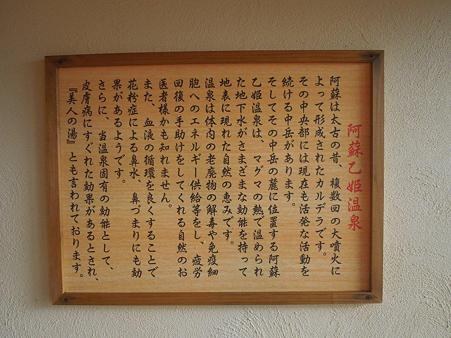 阿蘇乙姫温泉
阿蘇は太古の昔、複数回の大噴火に
よって形成されたカルデラです。
その中央部には現在も活発な活動を
続ける中岳があります。
そしてその中岳の麓に位置する阿蘇
乙姫温泉は、マグマの熱で温められ
た地下水がさまざまな効能を持って
地表に現れた自然の恵みです。
温泉は体内の老廃物の解毒や免疫細
胞へのエネルギー供給等をし、疲労
回復の手助けをしてくれる自然のお
医者様かも知れません。
また、血液の循環を良くすることで
花粉症による鼻水、鼻づまりにも効
果があるようです。
さらに、当温泉固有の効能として、
皮膚病にすぐれた効果があるとされ、
『美人の湯』とも言われております。